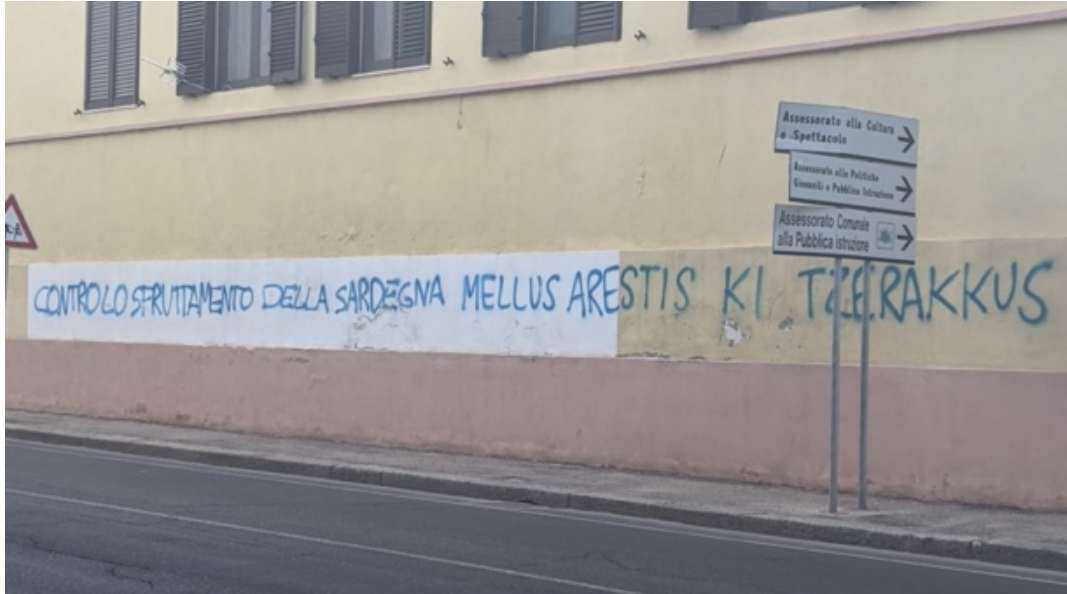 Assessorato alla Cultura
e Spettacolo
Assessorato alle Politiche
Giovanili e Pubblica Istruzione
Assessorato Comunale
alla Pubblica istruzione
CONTRO LO SFRUTTAMENTO DELLA SARDEGNA MELLUS ARESTIS KI TZERAKKUS